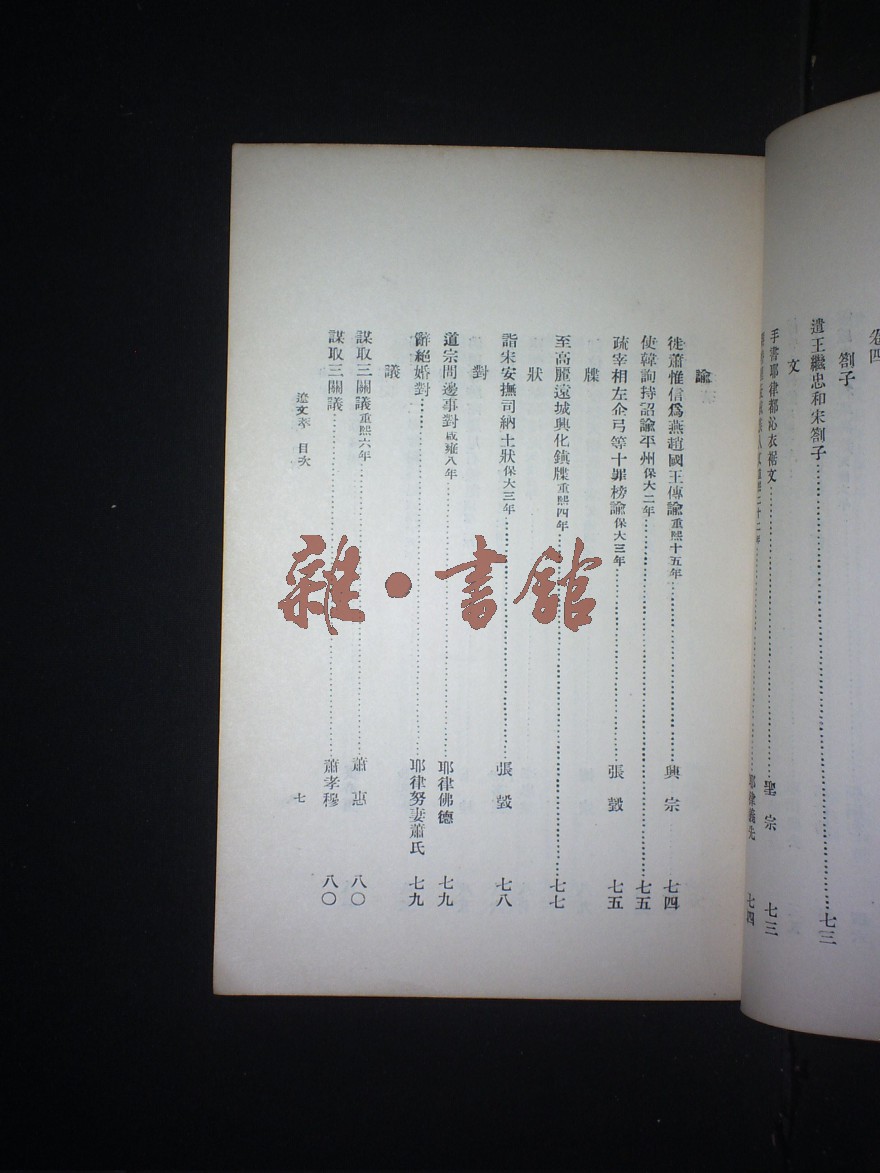 卷四
劄子
遺王繼忠和宋劄子……七三
文
手書耶律都沁衣裾文……聖宗 七三
二十二年……耶律義先 七四
諭
徙蕭惟信爲燕趙國王傅諭重熙十五年……興宗 七四
使韓詢持詔諭平州保大二年……七五
疏宰相左企弓等十罪榜諭保大三年……張瑴 七五
牒
至高麗遠城興化鎮牒重熙四年……七七
狀
詣宋安撫司納土狀保大三年……張瑴 七八
對
道宗問邊事對咸雍八年……耶律佛德 七九
辭絕婚對……耶律努妻蕭氏 七九
議
謀取三關議重熙六年……蕭惠 八〇
謀取三關議……蕭孝穆 八〇
遼文萃 目次
七
雜·書館